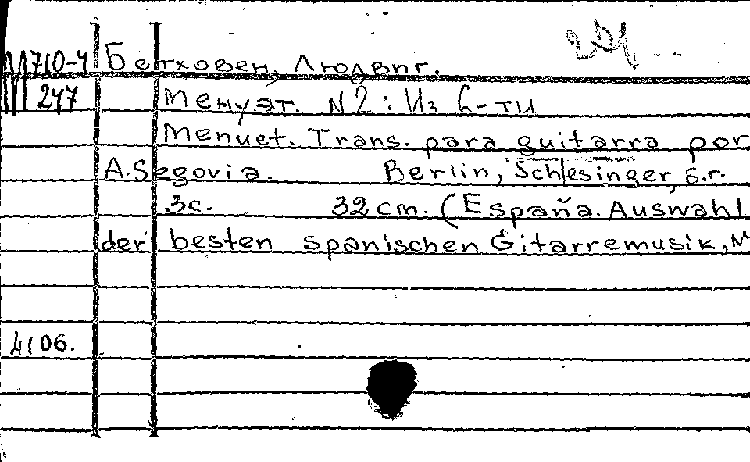 М710-4 Бетховен, Людвиг.
247 Менуэт. N2: Из 6-ти
Menuet. Trans. para guitarra por
A. Segovia. Berlin, Schlesinger, s.r.
3с. 32 cm. (España. Auswahl
der besten spanischen Gitarremusik, N
4106.